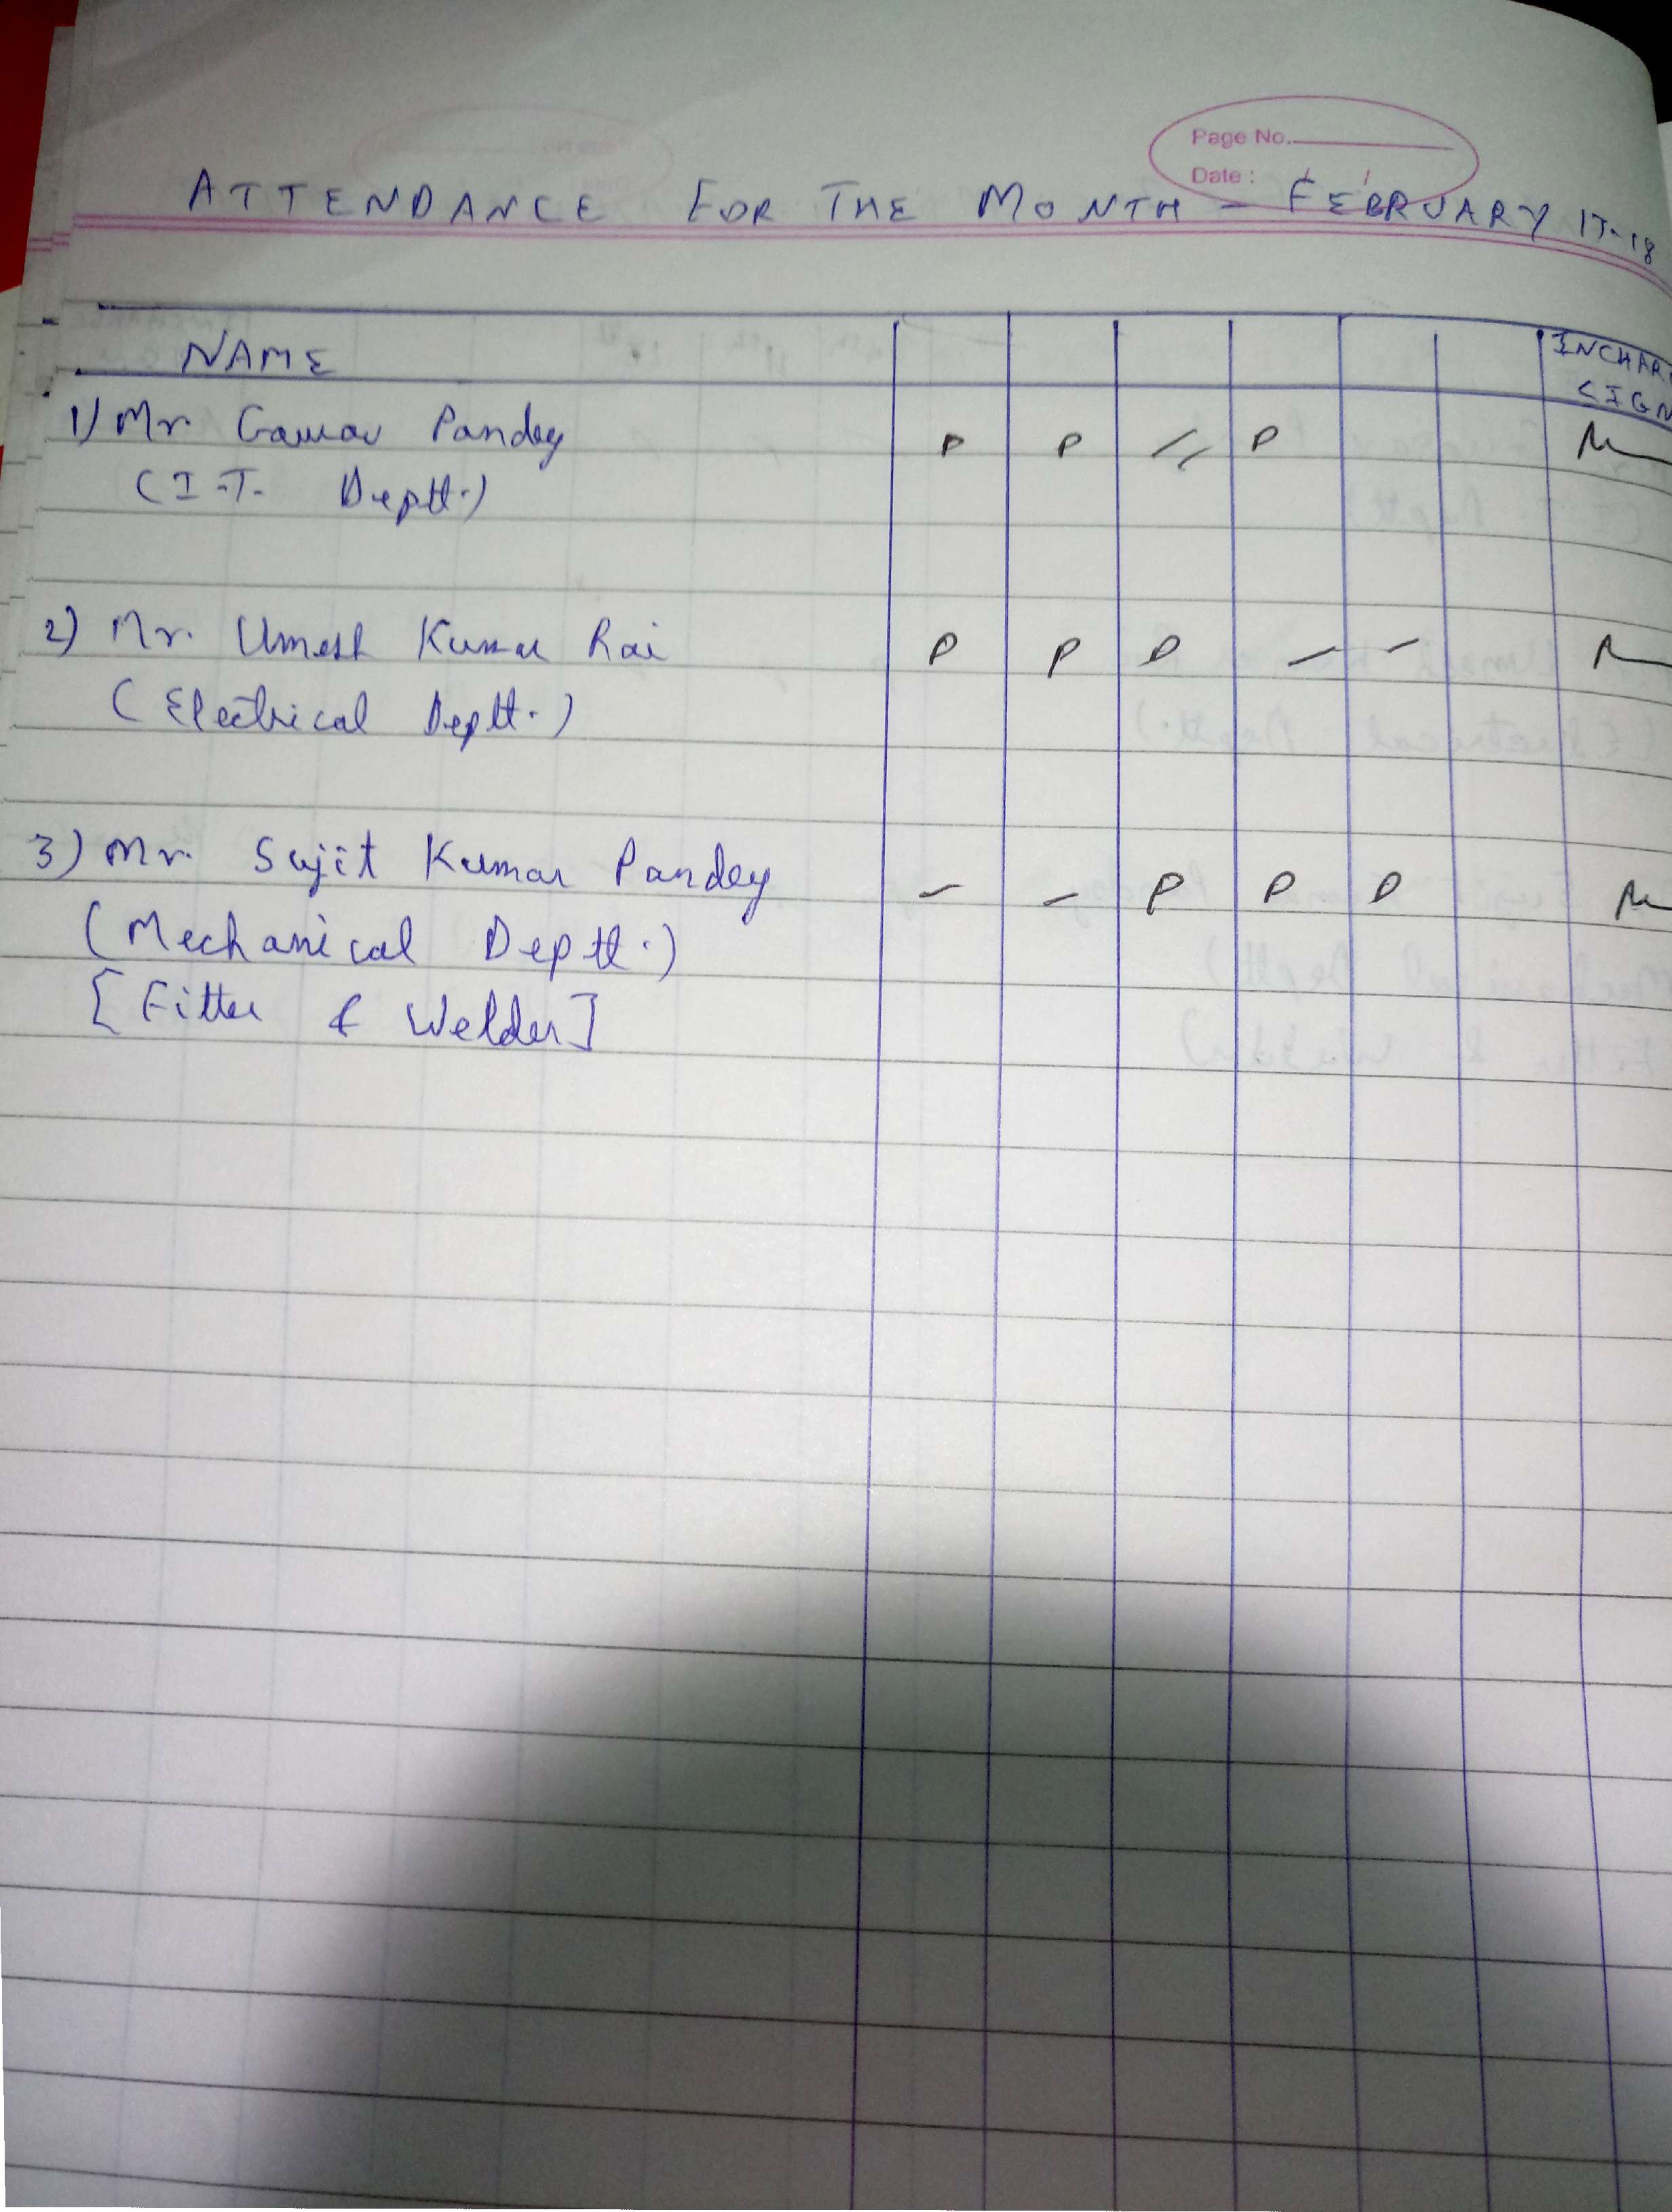 Page No.
Date: / /
ATTENDANCE FOR THE MONTH - FEBRUARY 17-18
NAME INCHAR SIGN
1) Mr. Gaurav Pandey P P P
(I.T. Deptt.)
2) Mr. Umesh Kumar Rai P P P - -
(Electrical Deptt.)
3) Mr. Sujit Kumar Pandey - - P P P
(Mechanical Deptt.)
[Fitter & Welder]